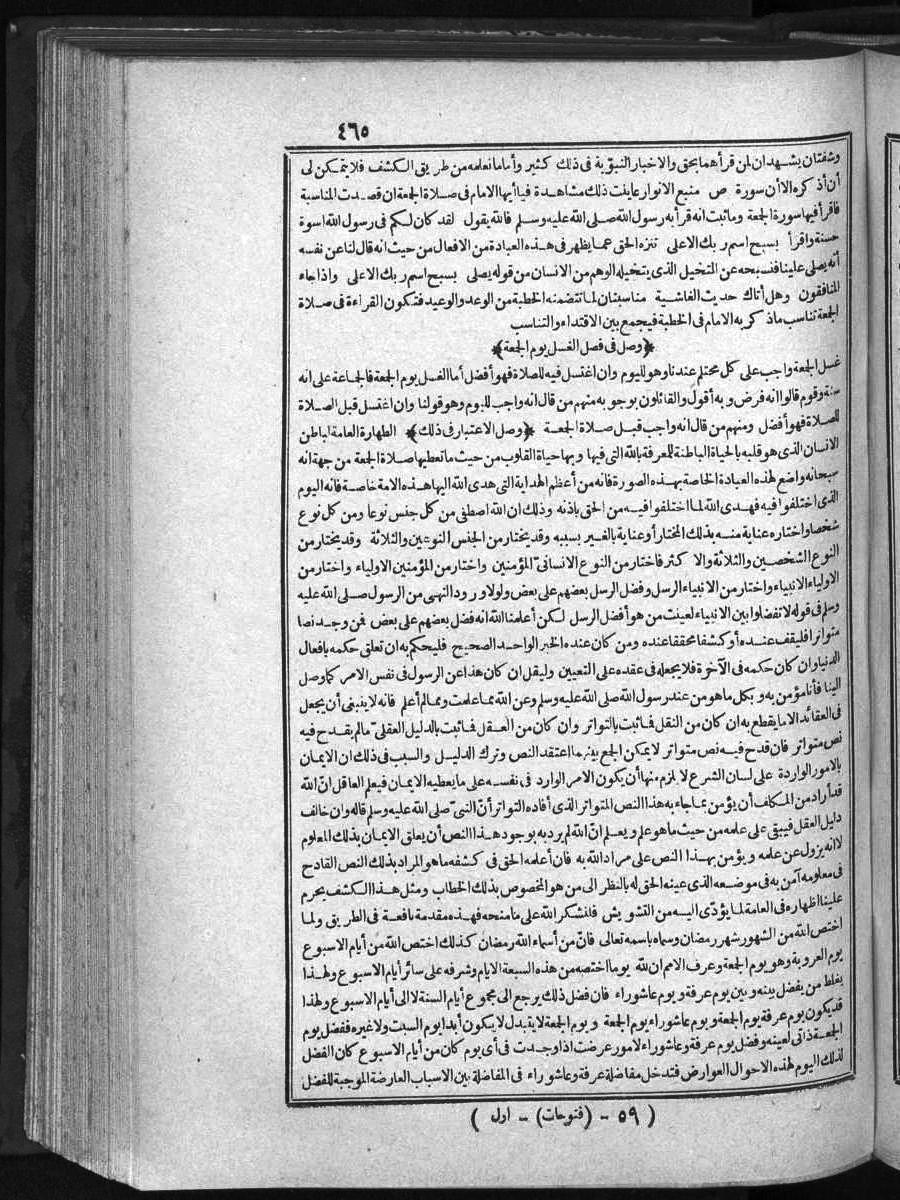 ٤٦٥
وشفتان يشهدان لمن قرأهما بحق والاخبار النبوّية فى ذلك كثير وأما ما نعلمه من طريق الكشف فلا يتمكن لى
أن أذكره الا أن سورة ص منبع الانوار عاينت ذلك مشاهدة فيا أيها الامام فى صلاة الجمعة ان قصدت المناسبة
فاقرأ فيها سورة الجمعة وما ثبت انه قرأ به رسول الله صلى الله عليه وسلم فالله يقول لقد كان لكم فى رسول الله اسوة
حسنة واقرأ بسبح اسم ربك الاعلى تنزه الحق عما يظهر فى هذه العبادة من الافعال من حيث انه قال لنا عن نفسه
أنه يصلى علينا فنسبحه عن التخيل الذى يتخيله الوهم من الانسان من قوله يصلى بسبح اسم ربك الاعلى واذا جاء
المنافقون وهل أتاك حديث الغاشية مناسبتان لما تتضمنه الخطبة من الوعد والوعيد فتكون القراءة فى صلاة
الجمعة تناسب ما ذكر به الامام فى الخطبة فيجمع بين الاقتداء والتناسب
﴿وصل فى فصل الغسل يوم الجمعة﴾
غسل الجمعة واجب على كل محتلم عندنا وهو لليوم وان اغتسل فيه للصلاة فهو أفضل أما الغسل يوم الجمعة فالجماعة على انه
سنة وقوم قالوا انه فرض و به أقول والقائلون بوجوبه منهم من قال انه واجب لليوم وهو قولنا وان اغتسل قبل الصلاة
للصلاة فهو أفضل ومنهم من قال انه واجب قبل صلاة الجمعة ﴿وصل الاعتبار فى ذلك﴾ الطهارة العامة لباطن
الانسان الذى هو قلبه بالحياة الباطنة للمعرفة بالله التى فيها وبها حياة القلوب من حيث ما تعطيها صلاة الجمعة من جهة انه
سبحانه واضع لهذه العبادة الخاصة بهذه الصورة فانه من أعظم الهداية التى هدى الله اليها هذه الامة خاصة فانه اليوم
الذى اختلفوا فيه فهدى الله لما اختلفوا فيه من الحق باذنه وذلك ان الله اصطفى من كل جنس نوعا ومن كل نوع
شخصا واختاره عناية منه بذلك المختار أو عناية بالغير بسببه وقد يختار من الجنس النوعين والثلاثة وقد يختار من
النوع الشخصين والثلاثة والاكثر فاختار من النوع الانسانىّ المؤمنين واختار من المؤمنين الاولياء واختار من
الاولياء الانبياء واختار من الانبياء الرسل وفضل الرسل بعضهم على بعض ولولا ورود النهى من الرسول صلى الله عليه
وسلم فى قوله لا تفضلوا بين الانبياء لعينت من هو أفضل الرسل لكن أعلمنا الله انه فضل بعضهم على بعض فمن وجد نصا
متواترا فليقف عنده أو كشفا محققا عنده ومن كان عنده الخبر الواحد الصحيح فليحكم به ان تعلق حكمه بافعال
الدنيا وان كان حكمه فى الآخرة فلا يجعله فى عقده على التعيين وليقل ان كان هذا عن الرسول فى نفس الامر كما وصل
الينا فأنا مؤمن به و بكل ما هو من عند رسول الله صلى الله عليه وسلم وعن الله مما علمت ومما لم أعلم فانه لا ينبغى أن يجعل
فى العقائد الا ما يقطع به ان كان من النقل فما ثبت بالتواتر وان كان من العقل فما ثبت بالدليل العقلىّ ما لم يقدح فيه
نص متواتر فان قدح فيه نص متواتر لا يمكن الجمع بينهما اعتقد النص وترك الدليل والسبب فى ذلك ان الايمان
بالامور الواردة على لسان الشرع لا يلزم منها أن يكون الامر الوارد فى نفسه على ما يعطيه الايمان فيعلم العاقل انّ الله
قد أراد من المكلف أن يؤمن بما جاء به هذا النص المتواتر الذى أفاده التواتر أنّ النبىّ صلى الله عليه وسلم قاله وان خالف
دليل العقل فيبقى على علمه من حيث ما هو علم و يعلم انّ الله لم يرد به بوجود هذا النص أن يعلق الايمان بذلك المعلوم
لا انه يزول عن علمه و يؤمن بهذا النص على مراد الله به فان أعلمه الحق فى كشفه ما هو المراد بذلك النص القادح
فى معلومه آمن به فى موضعه الذى عينه الحق له بالنظر الى من هو المخصوص بذلك الخطاب ومثل هذا الكشف يحرم
علينا اظهاره فى العامة لما يؤدّى اليه من التشويش فلنشكر الله على ما منحه فهذه مقدمة نافعة فى الطريق ولما
اختص الله من الشهور شهر رمضان وسماه باسمه تعالى فانّ من أسماء الله رمضان كذلك اختص الله من أيام الاسبوع
يوم العروبة وهو يوم الجمعة وعرف الامم ان لله يوما اختصه من هذه السبعة الايام وشرفه على سائر أيام الاسبوع ولهذا
يغلط من يفضل بينه و بين يوم عرفة و يوم عاشوراء فان فضل ذلك يرجع الى مجموع أيام السنة لا الى أيام الاسبوع ولهذا
قد يكون يوم عرفة يوم الجمعة و يوم عاشوراء يوم الجمعة و يوم الجمعة لا يتبدل لا يكون أبدا يوم السبت ولا غيره ففضل يوم
الجمعة ذاتى لعينه وفضل يوم عرفة وعاشوراء لامور عرضت اذا وجدت فى أى يوم كان من أيام الاسبوع كان الفضل
لذلك اليوم لهذه الاحوال العوارض فتدخل مفاضلة عرفة وعاشوراء فى المفاضلة بين الاسباب العارضة الموجبة للفضل
( ٥٩ - (فتوحات) - اول )